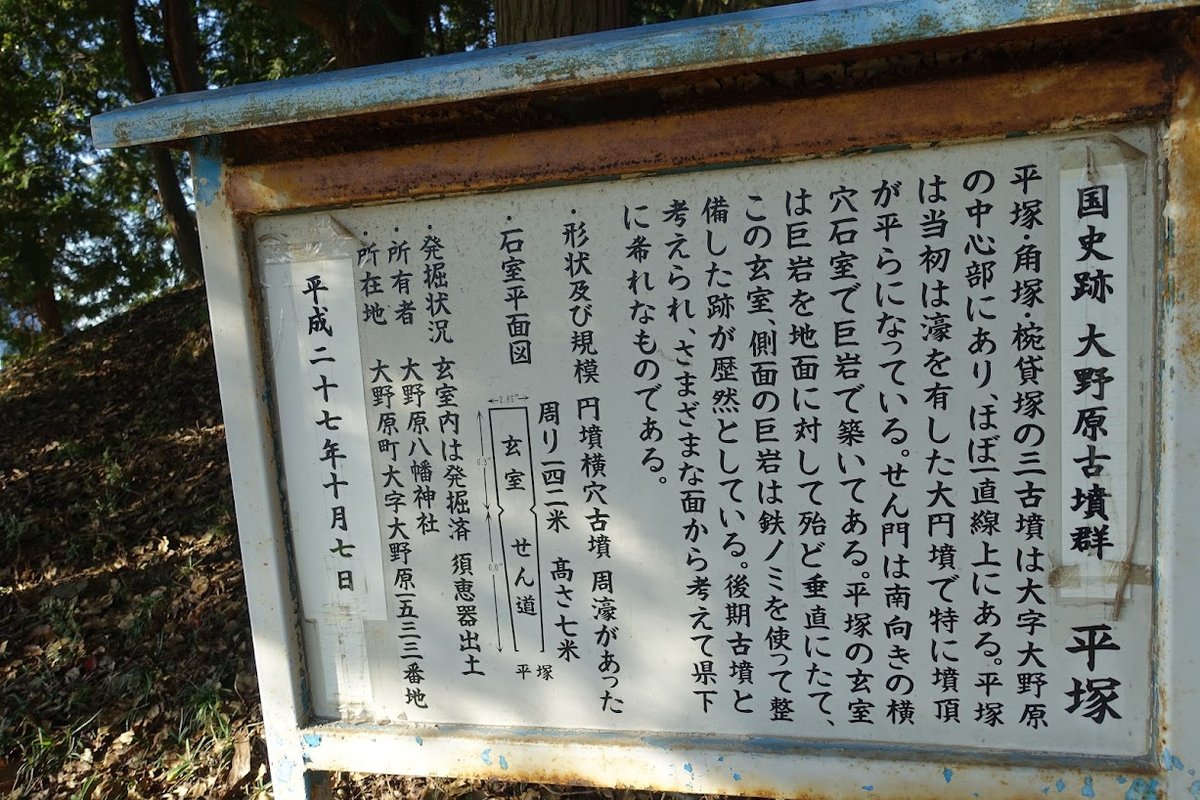 国史跡 大野原古墳群 平塚
平塚・角塚・椀貸塚の三古墳は大字大野原
の中心部にあり、ほぼ一直線上にある。平塚
は当初は濠を有した大円墳で特に墳頂
が平らになっている。せん門は南向きの横
穴石室で巨岩で築いてある。平塚の玄室
は巨岩を地面に対して殆ど垂直にたて、
この玄室、側面の巨岩は鉄ノミを使って整
備した跡が歴然としている。後期古墳と
考えられ、さまざまな面から考えて県下
に希れなものである。
・形状及び規模 円墳横穴古墳 周濠があった
周り一四二米 高さ七米
・石室平面図
玄室 せん道
平塚
・発掘状況 玄室内は発掘済 須恵器出土
・所有者 大野原八幡神社
・所在地 大野原町大字大野原一五三三番地
平成二十七年十月七日